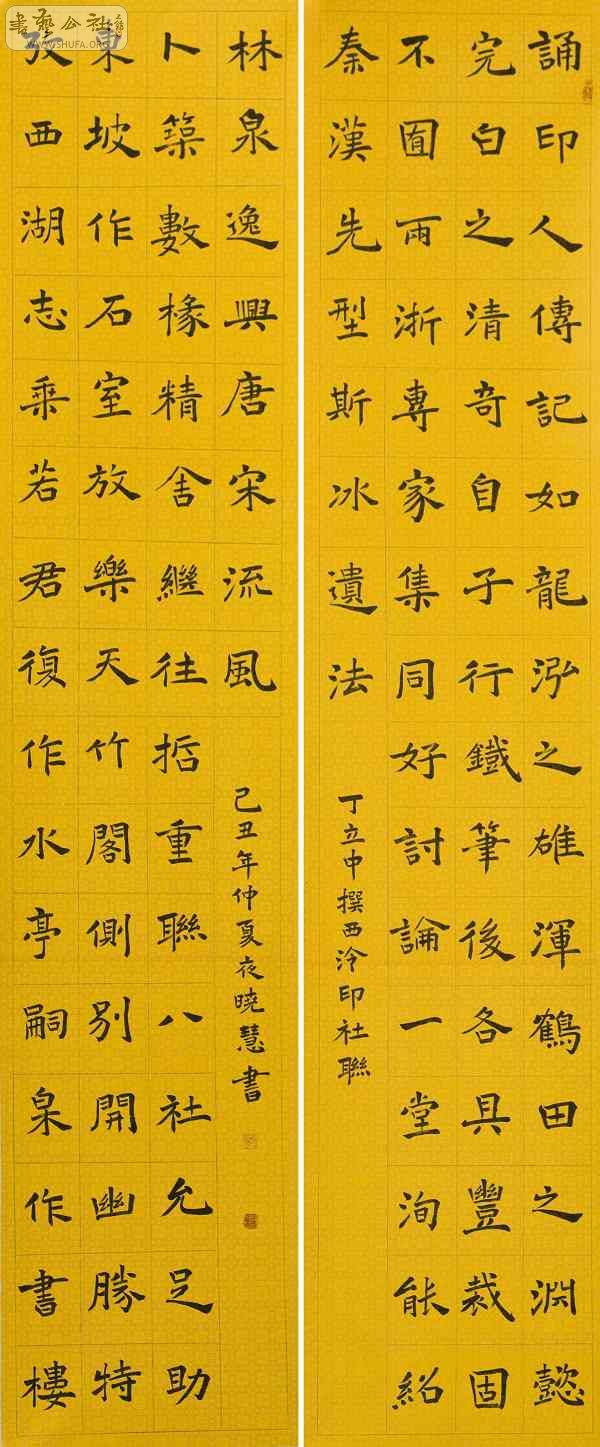 誦印人傳記如龍泓之雄渾鶴田之淵懿
完白之清奇自子行鐵筆後各具豐裁固
不囿兩浙專家集同好討論一堂洵能紹
秦漢先型斯冰遺法
丁立中撰西泠印社聯
攷西湖志乘若君復作水亭嗣杲作書樓
東坡作石室放樂天竹閣側別開幽勝特
卜築數椽精舍繼往哲重聯八社允足助
林泉逸興唐宋流風
己丑年仲夏夜曉慧書
書藝公社
WWW.SHUFA.ORG